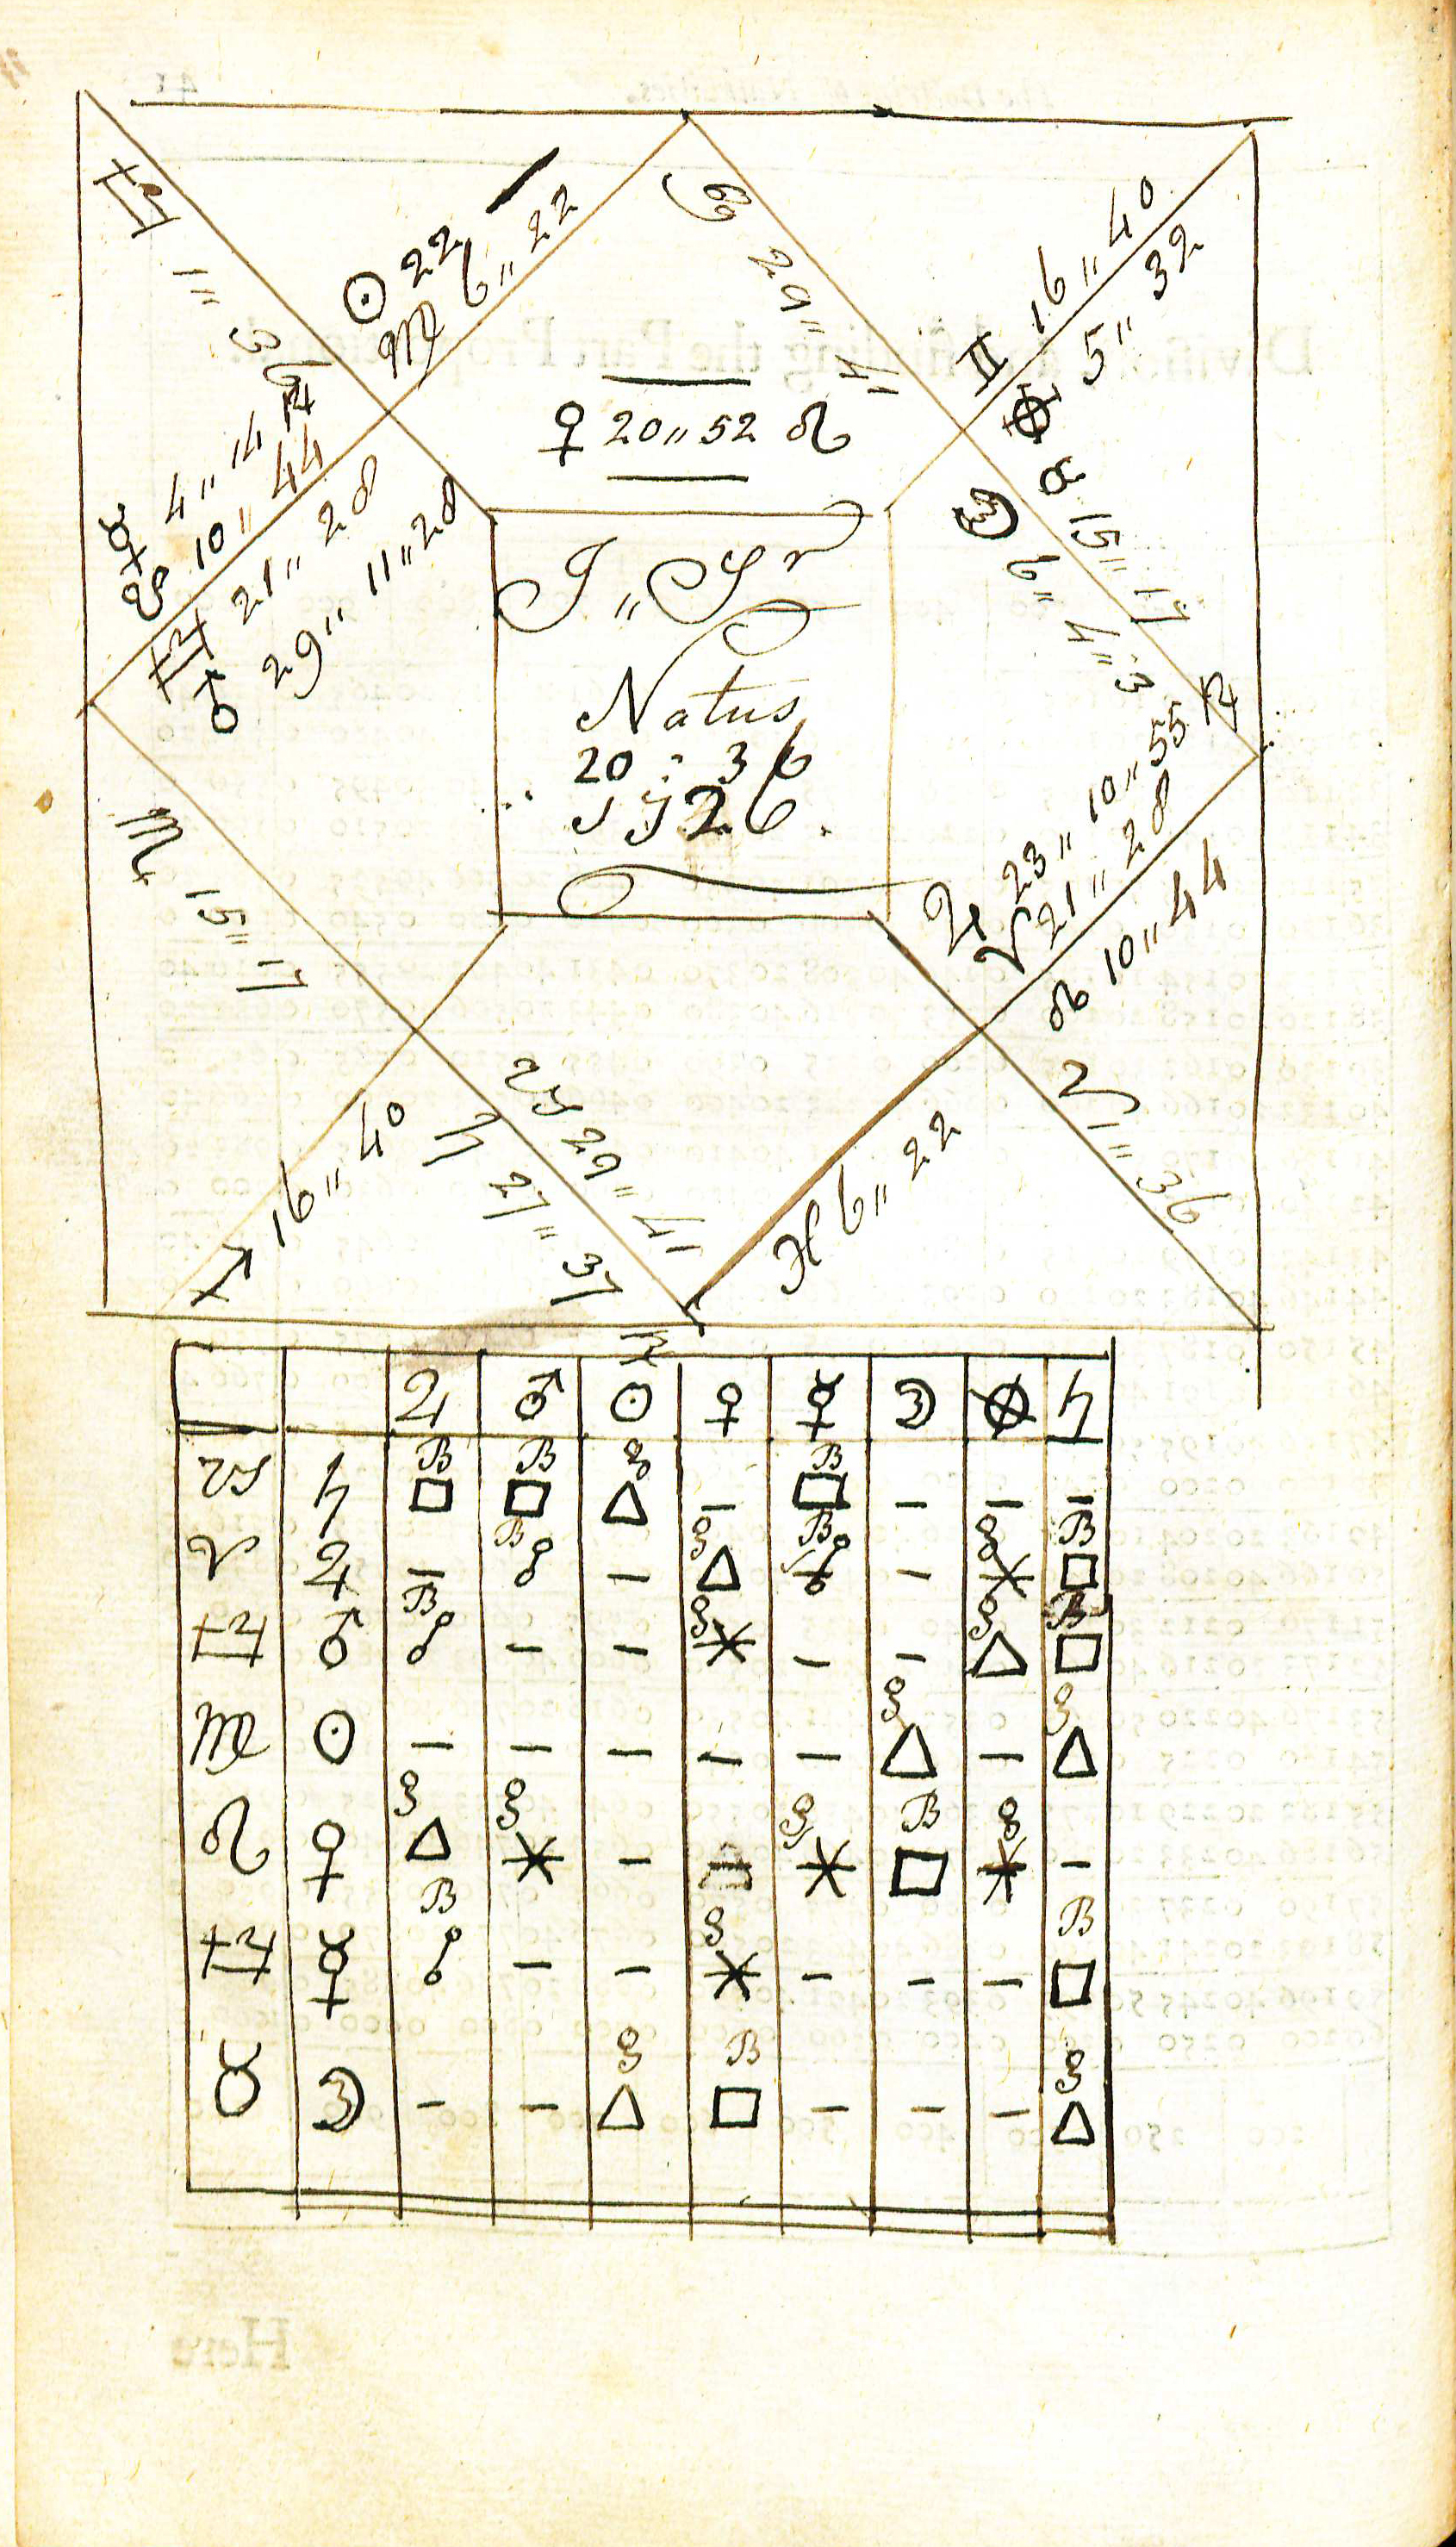 ♎ 1" 36
☉ 22
♍ 6" 22
♋ 29" 41
♊ 16" 40
⊕ 5" 32
♉ 15" 17
☽ 6" 4"3
♀ 20"52 ♌
☿ 4" 14 ♃
☋ 10" 44
♎ 21" 28
♂ 29" 11"28
Natus
20 : 36
1726.
♃ 23" 10"55 ℞
♈ 21" 28
☊ 10"44
♏ 15" 17
♐ 16" 40
♄ 27" 37
♑ 29" 41
♓ 6" 22
♒ 1" 36
♃ ♂ ☉ ♀ ☿ ☽ ⊕ ♄
B B g B
♑ ♄ □ □ △ – □ – – –
B g B g B
♈ ♃ – ☍ – △ ☍ – ⚹ □
B g g B
♎ ♂ ☍ – – ⚹ – – △ □
g g
♍ ☉ – – – – – △ – △
g g g B g
♌ ♀ △ ⚹ – – ⚹ □ ⚹ –
B g B
♎ ☿ ☍ – – ⚹ – – – □
g B g
♉ ☽ – – △ □ – – – △